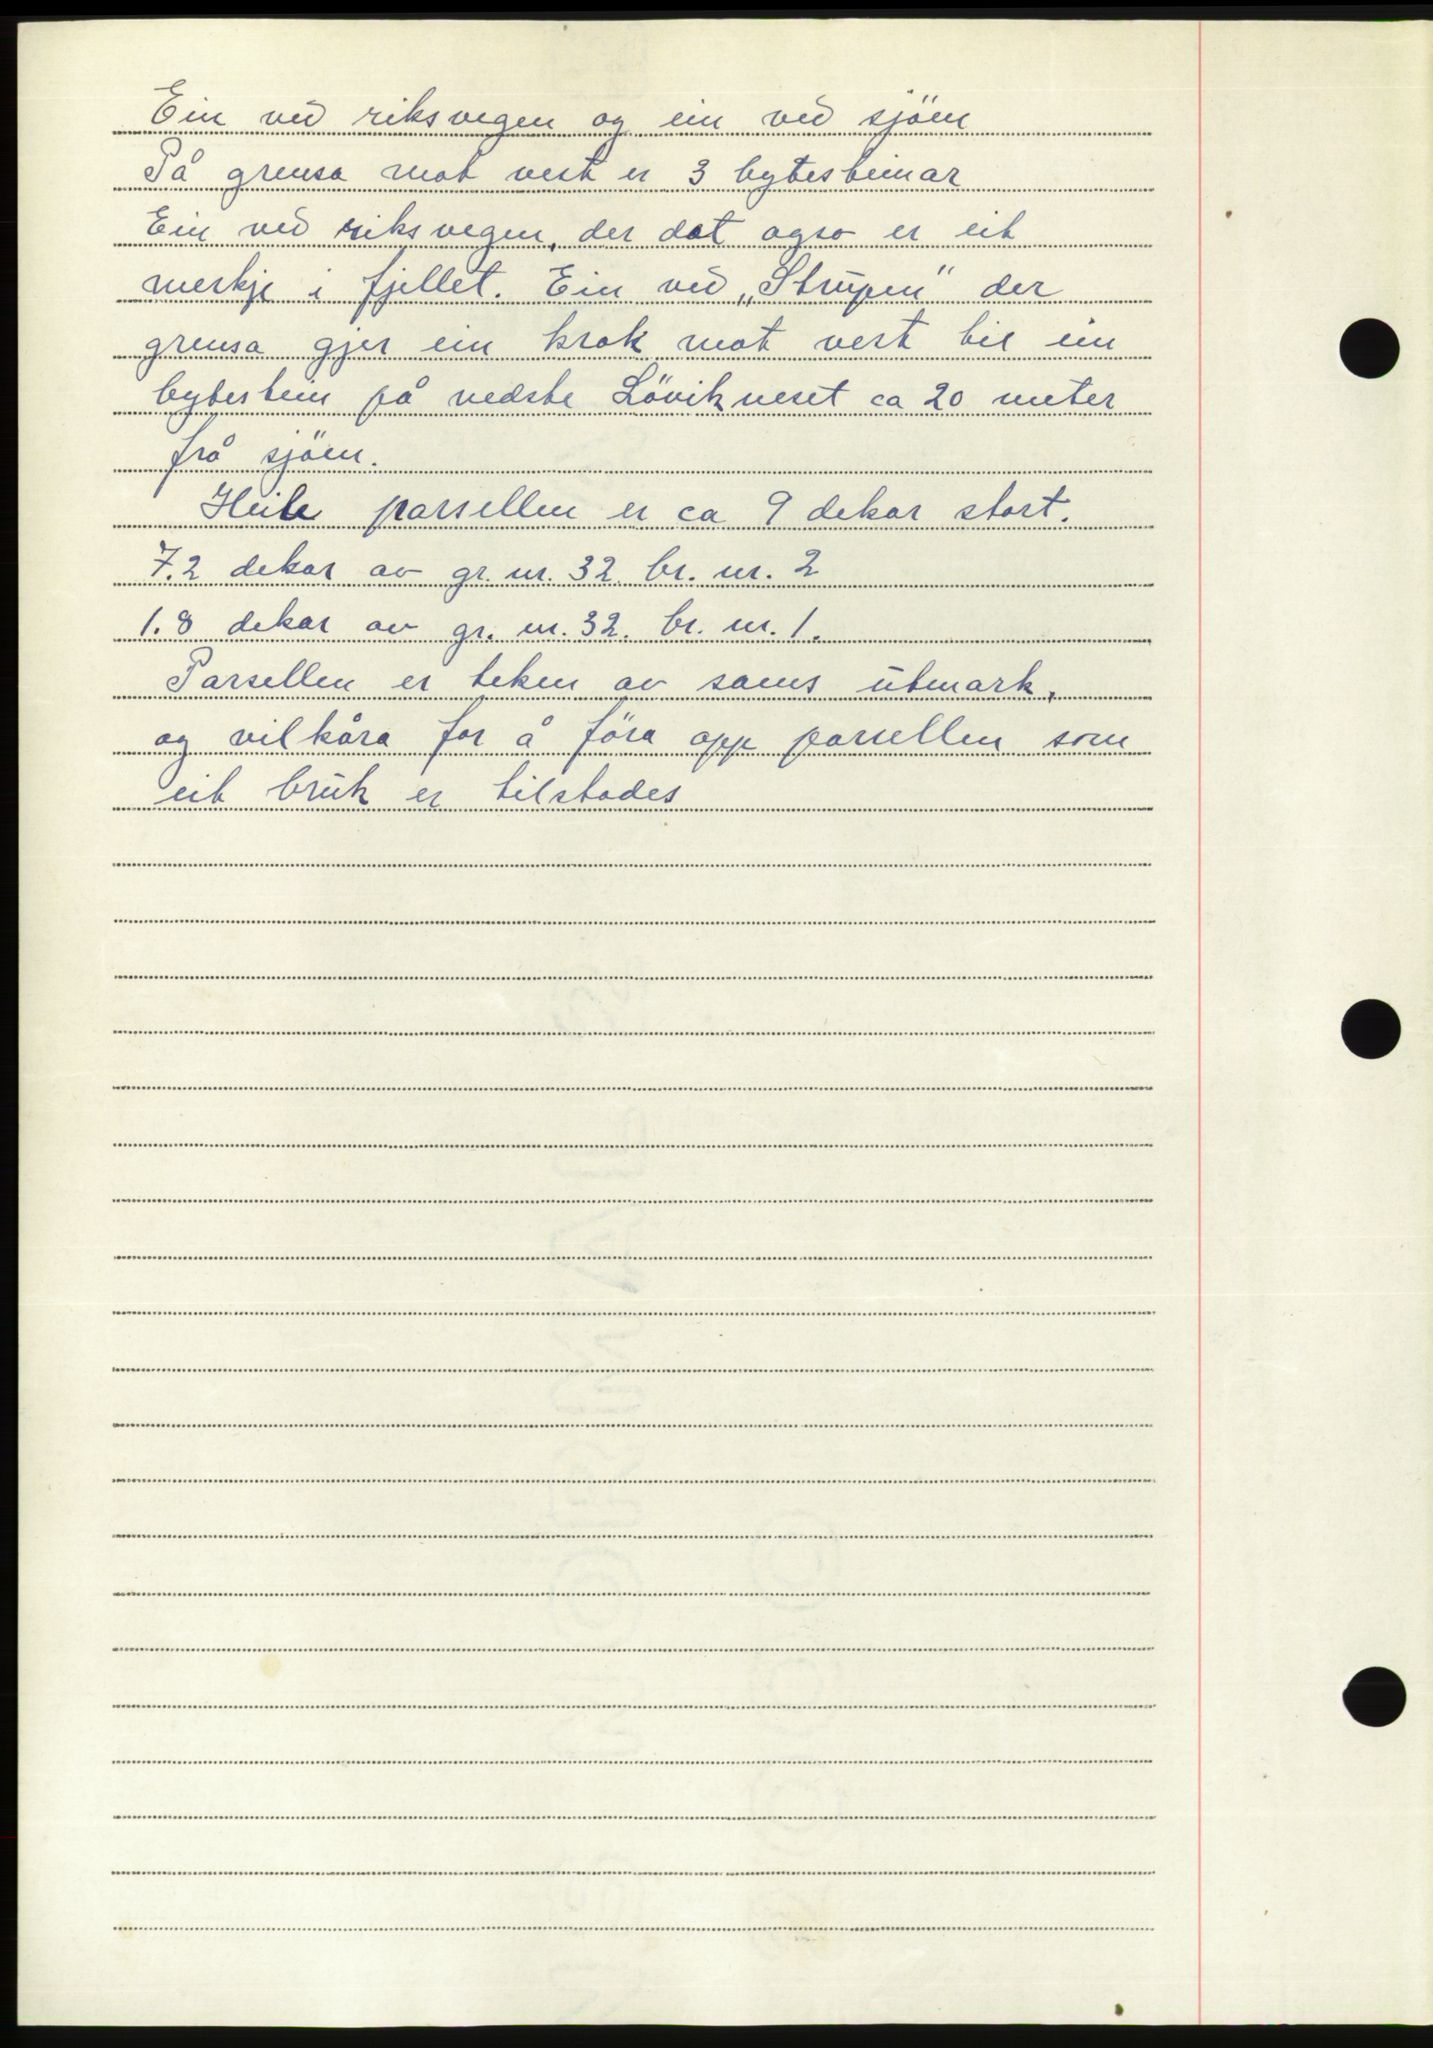 Ein ved riksvegen og ein ved sjöen
På grensa mot vest er 3 bytesteinar
Ein ved riksvegen, der det ogso er eit
merkje i fjellet. Ein ved „Strupen" der
grensa gjer ein krok mot vest til ein
bytestein på nedste Lövikneset ca 20 meter
frå sjöen.
Heile parsellen er ca 9 dekar stort.
7.2 dekar av gr. nr. 32 br. nr. 2
1.8 dekar av gr. nr. 32. br. nr. 1.
Parsellen er teken av sams utmark,
og vilkåra for å föra opp parsellen som
eit bruk er tilstades